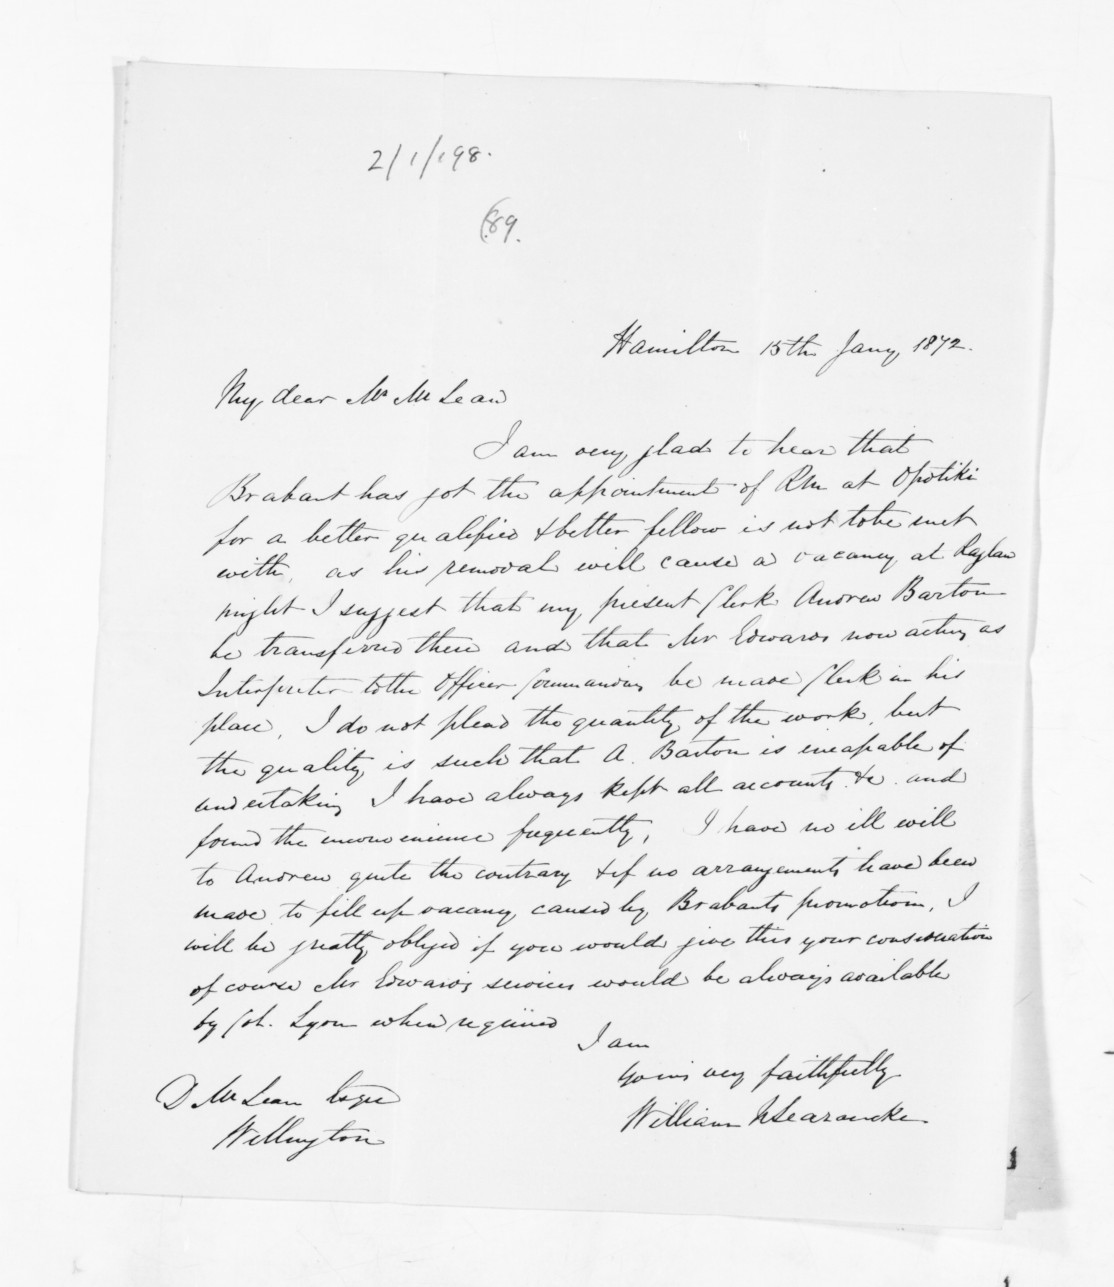 2/1/198.
(89.
Hamilton 15th Jany 1872.
My dear Mr McLean
I am very glad to hear that
Brabant has got the appointment of RM at Opotiki
for a better qualified & better fellow is not to be met
with, as his removal will cause a vacancy at Raglan
might I suggest that my present Clerk Andrew Barton
be transferred there and that Mr Edwards now acting as
Interpreter to the Officer Commanding be made Clerk in his
place, I do not plead the quantity of the work, but
the quality is such that A. Barton is incapable of
undertaking I have always kept all accounts &c. and
found the inconvenience frequently, I have no ill will
to Andrew quite the contrary & if no arrangements have been
made to fill up vacancy caused by Brabants promotion, I
will be greatly obliged if you would give this your consideration
of course Mr Edwards services would be always available
by Col. Lyon when required
I am
Yours very faithfully
William N Searancke
D McLean Esqre
Wellington